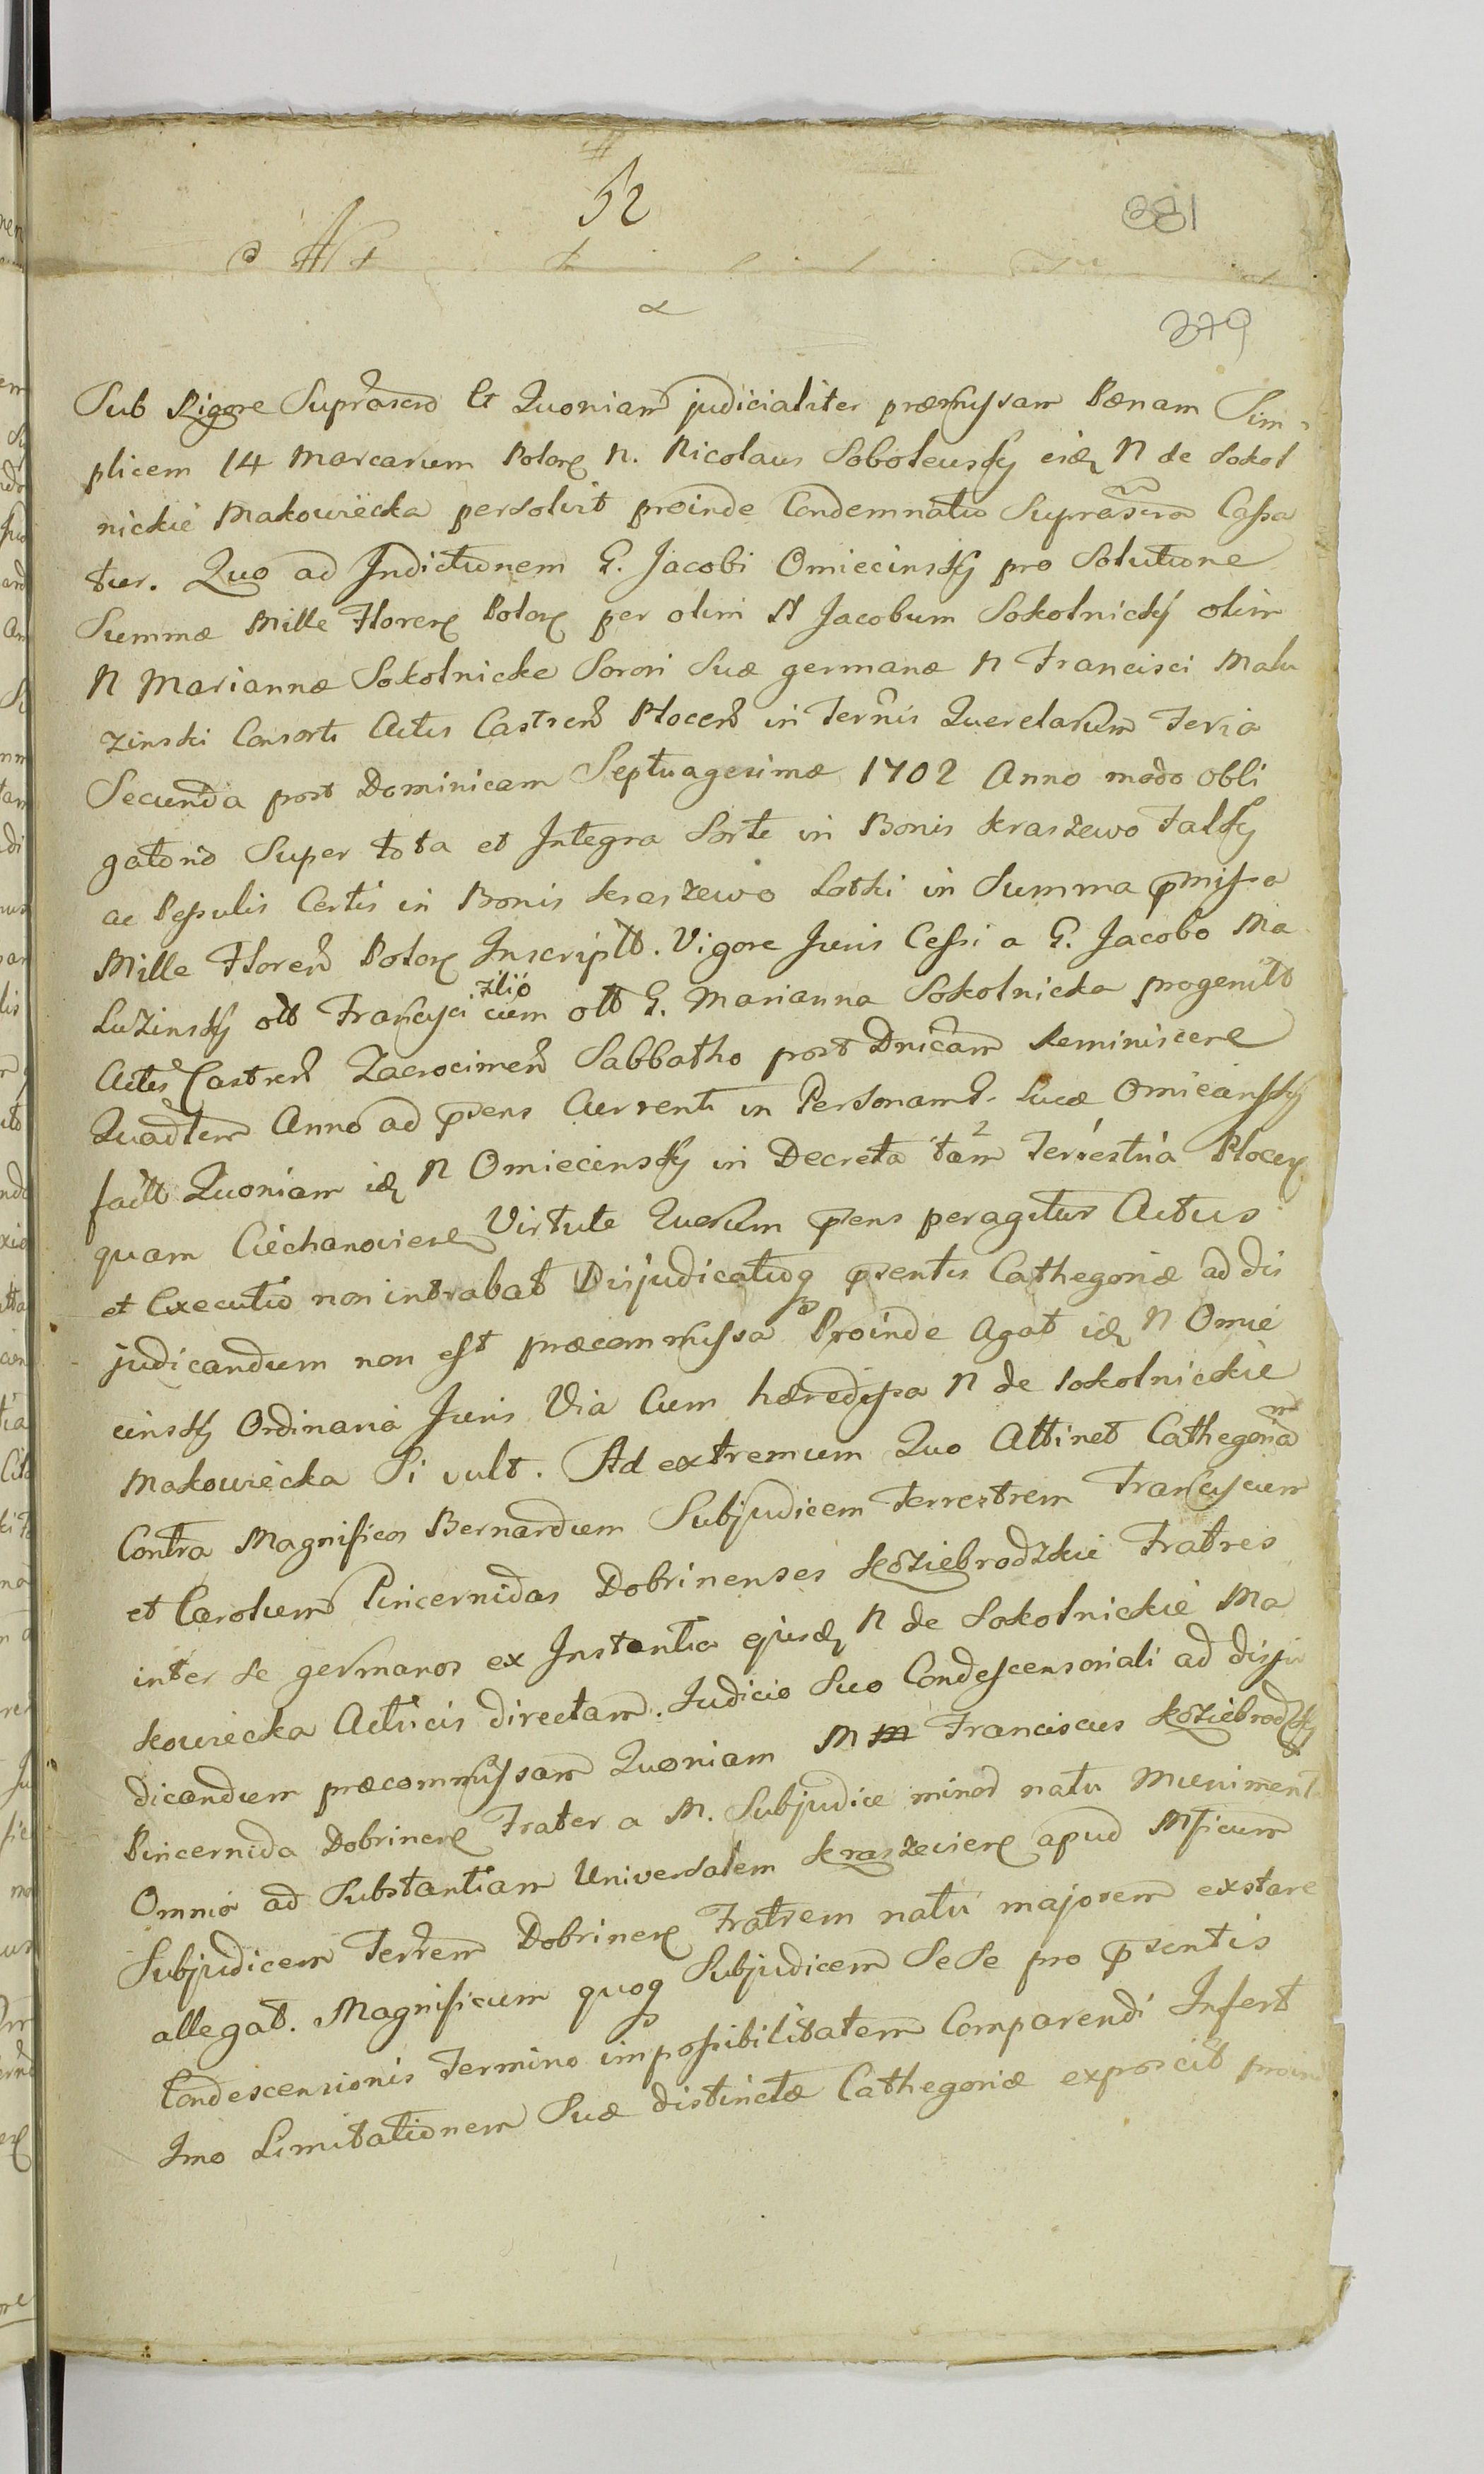 52
381
379
Sub Rigore Suprascro Et Quoniam judicialiter præmissam Pænam Sim-
plicem 14 Marcarum Polox N. Nicolaus Soboleusky eidz N de Sokol
nickie Makowiecka persolvit proinde Condemnatio Suprascra Cassa
tur. Quo ad Indictionem G. Jacobi Omiecinsky pro Solutione
Summæ Mille Florenx Polox per olim N Jacobum Sokolnicky olim
N Mariannæ Sokolnicke Sorori Suæ germanæ N Francisci Malu
zinski Consorti Actis Castren Plocen in Termis Querelarum Feria
Secunda post Dominicam Septuagesimæ 1702 Anno modo obli
gatorio Super tota et Integra Sorte in Bonis Kraszewo Falky
ac Pessulis Certis in Bonis Kraszewo Lotki in Summa pmissa
Mille Floren Polox Inscriptt. Vigore Juris Cessi a G. Jacobo Ma
Luzinsky olt Francisci zilio cum olt G. Marianna Sokolnicka progenitt
Actis Castren Zacrocimen Sabbatho post Dnicam Reminiscere
Quadlem Anno ad psens Currenti in Personam G. Lucæ Omiecinsky
factt Quoniam idz N Omiecinsky in Decreta tam 2 Terrestria Plocex
quam Ciechanoviene Virtute Quorum psens peragitur Actus
et Executio non intrabat Disjudicatioq psentis Cathegoriæ ad dis
judicandum non est præcommissa Proinde Agat idz N Omie
cinsky Ordinaria Juris Via Cum hæredissa N de Sokolnickie
Makowiecka Si vult. Ad extremum Quo Attinet Cathegoriam
Contra Magnificos Bernardum Subjudicem Terrestrem Franciscum
et Carolum Pincernidas Dobrinenses Koziebrodzkie Fratres
inter se germanos ex Instantia ejusdz N de Sokolnickie Ma
kowiecka Actricis directam. Judicio Suo Condescensoriali ad disju
dicandum præcommissam Quoniam M Franciscus Koziebrodzky
Pincernida Dobrinenx Frater a M. Subjudice minor natu Munimenta
Omnia ad Substantiam Universalem Kraszevienx apud Mficum
Subjudicem Terrem Dobrinenx Fratrem natu majorem exstare
allegat. Magnificum quoq Subjudicem Sese pro psentis
Condescensionis Termino impossibilitatem Comparendi Infert
Imo Limitationem Suæ distinctæ Cathegoriæ exposcit proin